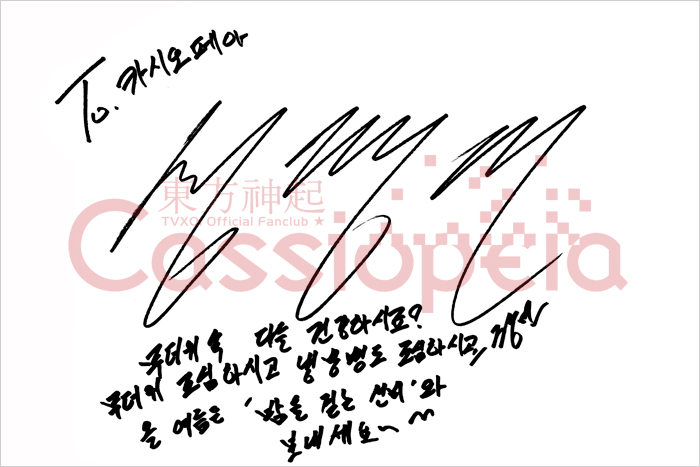 To. 카시오페아
東方神起
TVXQ! Official Fanclub ★
Cassiopeia
무더위 속 다들 건강하시죠?
무더위 조심하시고 냉방병도 조심하시고,
올 여름은 '밤을 걷는 선비'와
보내세요~~